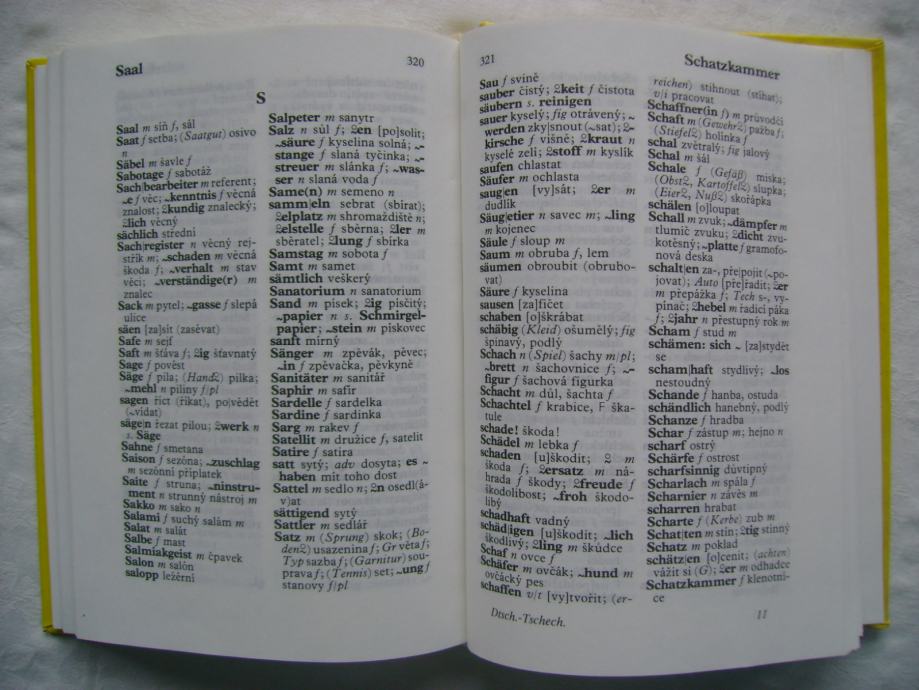 Saal
320
S
Saal m síň f, sál
Saat f setba; (Saatgut) osivo
n
Säbel m šavle f
Sabotage f sabotáž
Sach|bearbeiter m referent;
~e f věc; ~kenntnis f věcná
znalost; 2kundig znalecký;
2lich věcný
sächlich střední
Sach|register n věcný rej-
střík m; ~schaden m věcná
škoda f; ~verhalt m stav
věci; ~verständige(r) m
znalec
Sack m pytel; ~gasse f slepá
ulice
säen [za]sít (zasévat)
Safe m sejf
Saft m šťáva f; 2ig šťavnatý
Sage f pověst
Säge f pila; (Hand2) pilka;
~mehl n piliny f/pl
sagen říct (říkat), po|vědět
(~vídat)
säge|n řezat pilou; 2werk n
s. Säge
Sahne f smetana
Saison f sezóna; ~zuschlag
m sezónní příplatek
Saite f struna; ~ninstru-
ment n strunný nástroj m
Sakko m sako n
Salami f suchý salám m
Salat m salát
Salbe f mast
Salmiakgeist m čpavek
Salon m salón
salopp ležérní
Salpeter m sanytr
Salz n sůl f; 2en [po]solit;
~säure f kyselina solná; ~-
stange f slaná tyčinka; ~-
streuer m slánka f; ~was-
ser n slaná voda f
Same(n) m semeno n
samm|eln sebrat (sbírat);
2elplatz m shromaždiště n;
2elstelle f sběrna; 2ler m
sběratel; 2lung f sbírka
Samstag m sobota f
Samt m samet
sämtlich veškerý
Sanatorium n sanatorium
Sand m písek; 2ig písčitý;
~papier n s. Schmirgel-
papier; ~stein m pískovec
sanft mírný
Sänger m zpěvák, pěvec;
~in f zpěvačka, pěvkyně
Sanitäter m sanitář
Saphir m safír
Sardelle f sardelka
Sardine f sardinka
Sarg m rakev f
Satellit m družice f, satelit
Satire f satira
satt sytý; adv dosyta; es ~
haben mít toho dost
Sattel m sedlo n; 2n osedl(á-
v)at
sättigend sytý
Sattler m sedlář
Satz m (Sprung) skok; (Bo-
den2) usazenina f; Gr věta f;
Typ sazba f; (Garnitur) sou-
prava f; (Tennis) set; ~ung f
stanovy f/pl
321
Schatzkammer
Sau f svině
sauber čistý; 2keit f čistota
säubern s. reinigen
sauer kyselý; fig otrávený; ~
werden zky|snout (~sat); 2-
kirsche f višně; 2kraut n
kyselé zelí; 2stoff m kyslík
saufen chlastat
Säufer m ochlasta
saug|en [vy]sát; 2er m
dudlík
Säug|etier n savec m; ~ling
m kojenec
Säule f sloup m
Saum m obruba f, lem
säumen obroubit (obrubo-
vat)
Säure f kyselina
sausen [za]fičet
schaben [o]škrábat
schäbig (Kleid) ošumělý; fig
špinavý, podlý
Schach n (Spiel) šachy m/pl;
~brett n šachovnice f; ~-
figur f šachová figurka
Schacht m důl, šachta f
Schachtel f krabice, F ška-
tule
schade! škoda!
Schädel m lebka f
schaden [u]škodit; 2 m
škoda f; 2ersatz m ná-
hrada f škody; 2freude f
škodolibost; ~froh škodo-
libý
schadhaft vadný
schäd|igen [u]škodit; ~lich
škodlivý; 2ling m škůdce
Schaf n ovce f
Schäfer m ovčák; ~hund m
ovčácký pes
schaffen v/t [vy]tvořit; (er-
reichen) stihnout (stíhat);
v/i pracovat
Schaffner(in f) m průvodčí
Schaft m (Gewehr2) pažba f;
(Stiefel2) holínka f
schal zvětralý; fig jalový
Schal m šál
Schale f (Gefäß) miska;
(Obst2, Kartoffel2) slupka;
(Eier2, Nuß2) skořápka
schälen [o]loupat
Schall m zvuk; ~dämpfer m
tlumič zvuku; 2dicht zvu-
kotěsný; ~platte f gramofo-
nová deska
schalt|en za-, pře|pojit (~po-
jovat); Auto [pře]řadit; 2er
m přepážka f; Tech s-, vy-
pínač; 2hebel m řadicí páka
f; 2jahr n přestupný rok m
Scham f stud m
schämen: sich ~ [za]stydět
se
scham|haft stydlivý; ~los
nestoudný
Schande f hanba, ostuda
schändlich hanebný, podlý
Schanze f hradba
Schar f zástup m; hejno n
scharf ostrý
Schärfe f ostrost
scharfsinnig důvtipný
Scharlach m spála f
Scharnier n závěs m
scharren hrabat
Scharte f (Kerbe) zub m
Schat|ten m stín; 2tig stinný
Schatz m poklad
schätz|en [o]cenit; (achten)
vážit si (G); 2er m odhadce
Schatzkammer f klenotni-
ce
Dtsch.-Tschech.
11